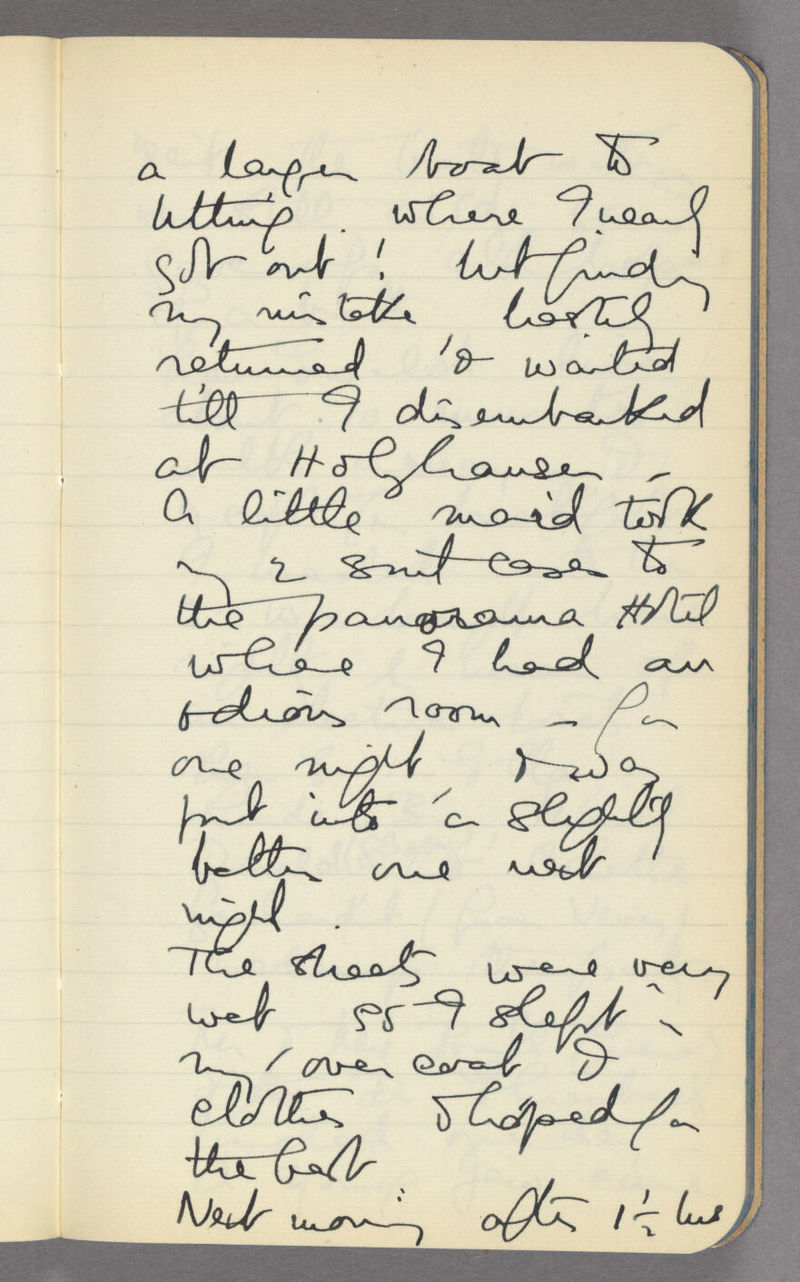 a larger boat to
Utting. where I nearly
got out! but finding
my mistake hastily
returned & waited
till I disembarked
at Holzhausen -
A little maid took
my 2 suit cases to
the panorama Hotel
where I had an
odious room - for
one night & was
put into a slightly
better one next
night.
The sheets were very
wet so I slept in
my overcoat &
clothes & hoped for
the best
Next morning after 1½ hrs